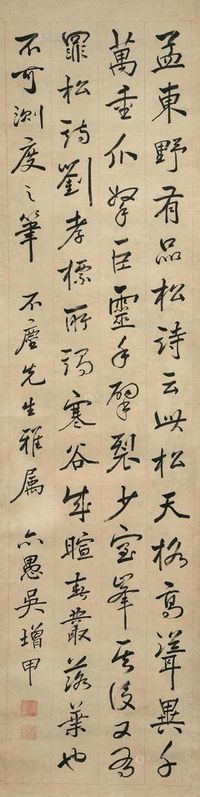 孟東野有品松詩云此松天格高聳異千
萬重爪拏巨靈手擘裂少室峯其後又有
罪松詩劉孝標所謂寒谷成暄春叢落葉也
不可測度之筆 不塵先生雅屬 亦愚吳增甲